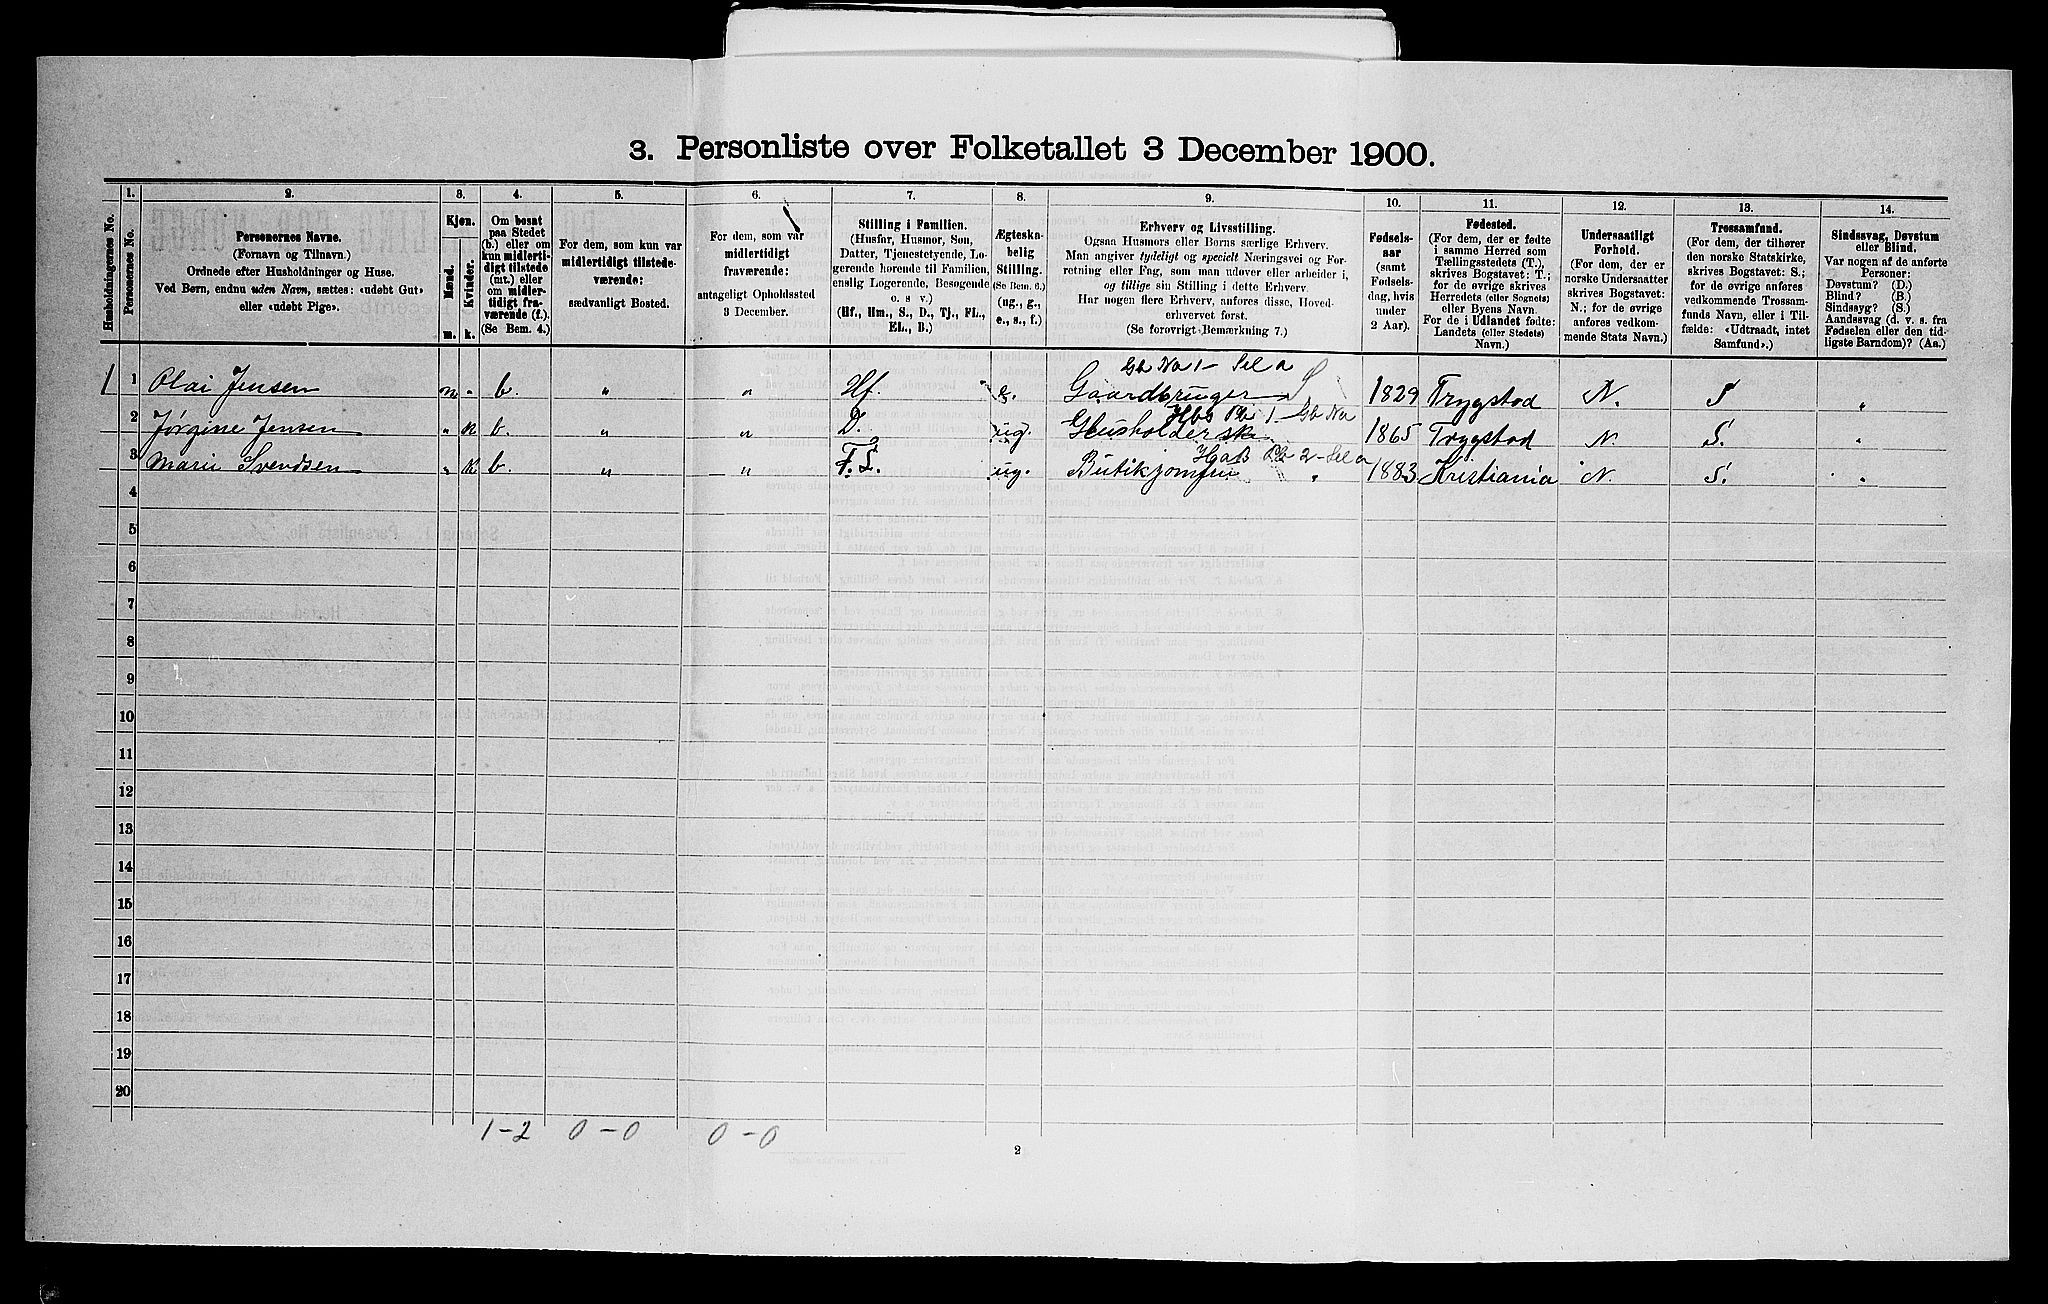 3. Personliste over Folketallet 3 December 1900.
1. 2. 3. 4. 5. 6. 7. 8. 9. 10. 11. 12. 13. 14.
Husholdningernes No.
Personernes No.
Personernes Navne.
(Fornavn og Tilnavn.)
Ordnede efter Husholdninger og Huse.
Ved Børn, endnu uden Navn, sættes: «udøbt Gut»
eller «udøbt Pige».
Kjøn.
Mænd.
Kvinder.
m. k.
Om bosat
paa Stedet
(b.) eller om
kun midlerti-
digt tilstede
(mt.) eller
om midler-
tidigt fra-
værende (f.).
(Se Bem. 4.)
For dem, som kun var
midlertidigt tilstede-
værende:
sædvanligt Bosted.
For dem, som var
midlertidigt
fraværende:
antageligt Opholdssted
3 December.
Stilling i Familien.
(Husfar, Husmor, Søn,
Datter, Tjenestetyende, Lo-
gerende hørende til Familien,
enslig Logerende, Besøgende
o. s v.)
(Hf., Hm., S., D., Tj., FL.,
EL., B.)
Ægteska-
belig
Stilling.
(Se Bem. 6.)
(ug., g.,
e., s., f.)
Erhverv og Livsstilling.
Ogsaa Husmors eller Børns særlige Erhverv.
Man angiver tydeligt og specielt Næringsvei og For-
retning eller Fag, som man udøver eller arbeider i,
og tillige sin Stilling i dette Erhverv.
Har nogen flere Erhverv, anføres disse, Hoved-
erhvervet først.
(Se forøvrigt Bemærkning 7.)
Fødsels-
aar
(samt
Fødsels-
dag, hvis
under
2 Aar).
Fødested.
(For dem, der er fødte
i samme Herred som
Tællingsstedets (T.),
skrives Bogstavet: T.;
for de øvrige skrives
Herredets (eller Sognets)
eller Byens Navn.
For de i Udlandet fødte:
Landets (eller Stedets)
Navn.)
Undersaatligt
Forhold.
(For dem, der er
norske Undersaatter
skrives Bogstavet:
N.; for de øvrige
anføres vedkom-
mende Stats Navn.)
Trossamfund.
(For dem, der tilhører
den norske Statskirke,
skrives Bogstavet: S.;
for de øvrige anføres
vedkommende Trossam-
funds Navn, eller i Til-
fælde: «Udtraadt, intet
Samfund».)
Sindssvag, Døvstum
eller Blind.
Var nogen af de anførte
Personer:
Døvstum? (D.)
Blind? (B.)
Sindssyg? (S.)
Aandssvag (d. v. s. fra
Fødselen eller den tid-
ligste Barndom)? (Aa.)
Gb No 1 - Sel a
1 1 Olai Jensen m " b. " " Hf. e. Gaardbruger 1829 Trygstad N. S "
2 Jørgine Jensen " k b. " " D. ug. Husholderske 1865 Trygstad N. S. "
3 Marie Svendsen " k b. " " F.L. ug. Butikjomfru " 1883 Kristiania N. S. "
4
5
6
7
8
9
10
11
12
13
14
15
16
17
18
19
20
1-2 0-0 0-0
2